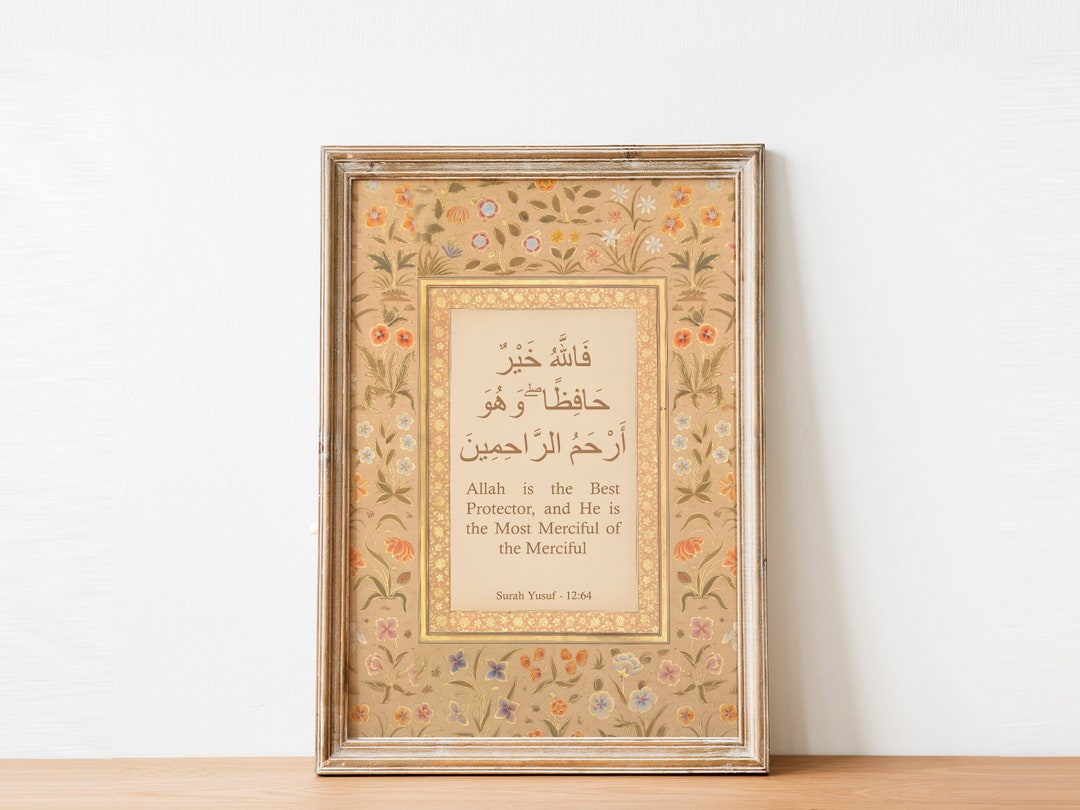 فَاللَّهُ خَيْرٌ
حَافِظًا ۖ وَهُوَ
أَرْحَمُ الرَّاحِمِينَ
Allah is the Best
Protector, and He is
the Most Merciful of
the Merciful
Surah Yusuf - 12:64